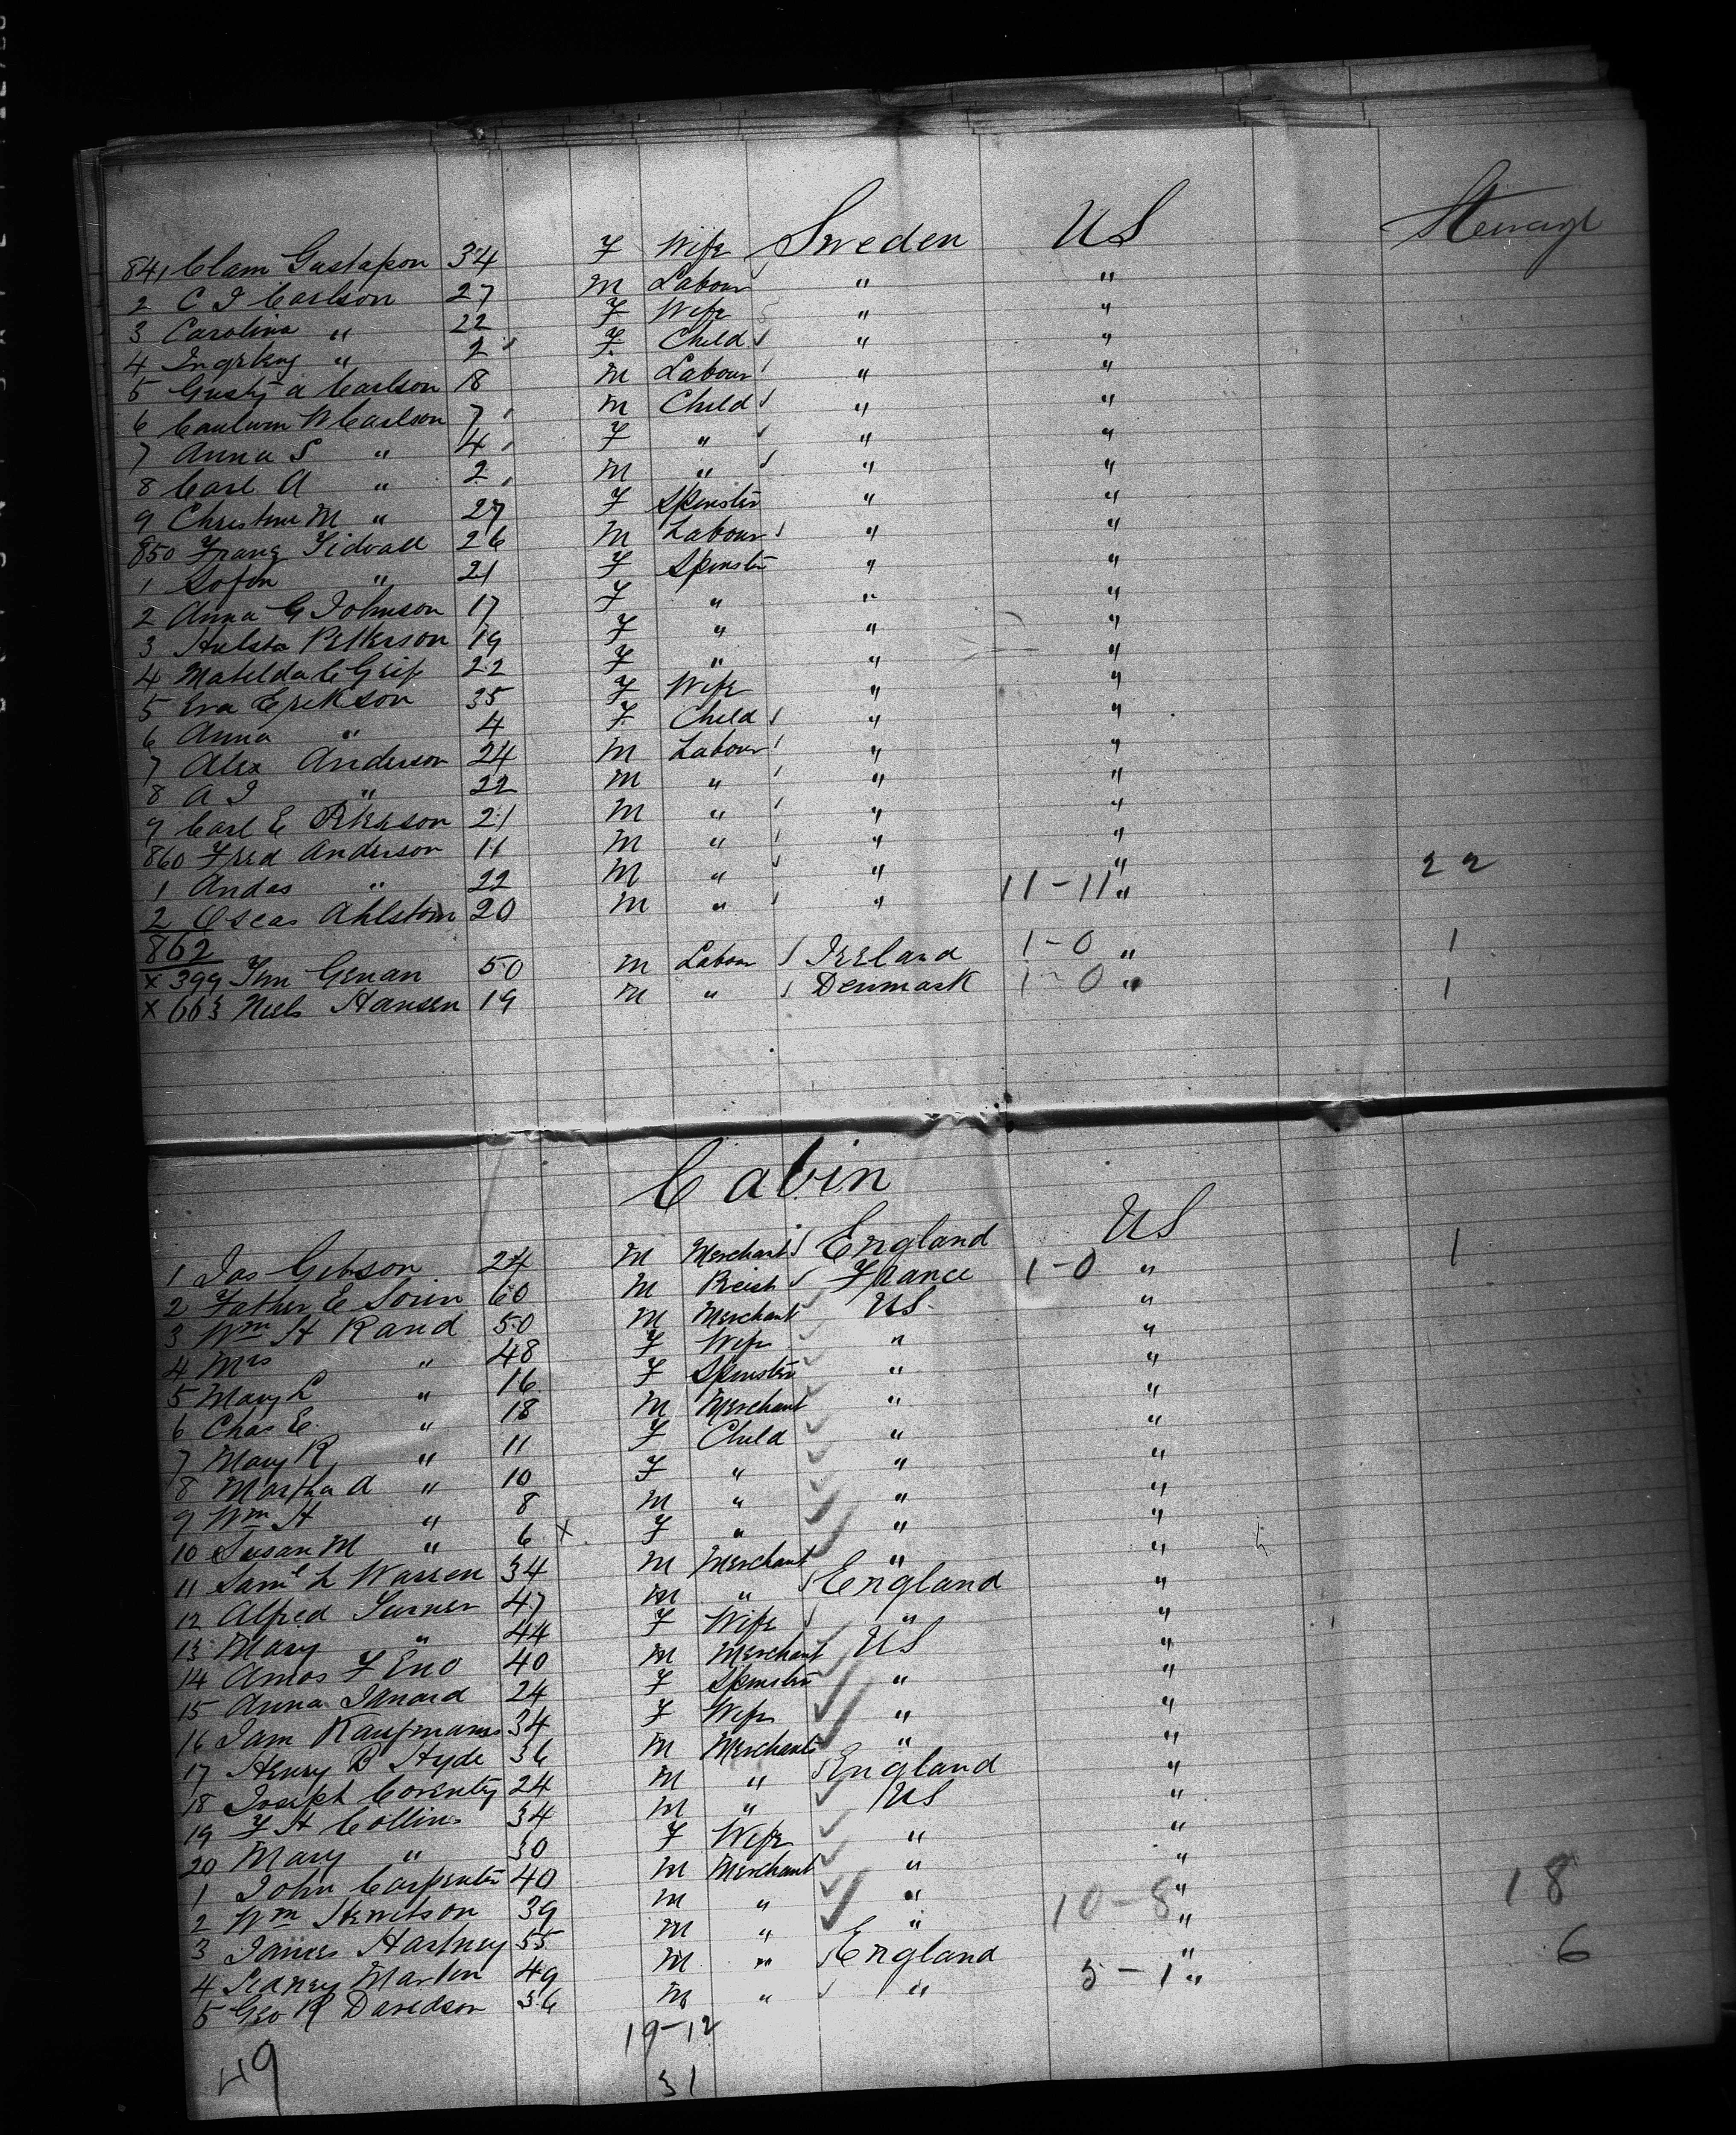 Steerage
841 Clam Gustafson 34 F Wife Sweden US
2 C J Carlson 27 M Labour " "
3 Carolina " 22 F Wife " "
4 " 2 F Child " "
5 Gust a Carlson 18 M Labour " "
6 W Carlson 7 M Child " "
7 Anna S " 4 F " " "
8 Carl A " 2 M " " "
9 Christine M " 27 F Spinster " "
850 Franz Tidvall 26 M Labour " "
1 Sofia " 21 F Spinster " "
2 Anna G Johnson 17 F " " "
3 Hulsta Petterson 19 F " " "
4 Matelda C Grip 22 F " " "
5 Eva Erikson 35 F Wife " "
6 Anna " 4 F Child " "
7 Alex Anderson 24 M Labour " "
8 A J " 22 M " " "
9 Carl E Peterson 21 M " " "
860 Fred Anderson 11 M " " "
1 Andas " 22 M " " " 22
2 Oscar Ahlstom 20 M " " 11-11 "
862
x 399 Genan 50 M Labour Ireland 1-0 " 1
x 663 Niels Hansen 19 M " Denmark 1-0 " 1
Cabin
1 Jas Gibson 24 M Merchant England US
2 Father E Sorin 60 M Preist France 1-0 " 1
3 Wm H Rand 50 M Merchant US "
4 Mrs " 48 F Wife " "
5 Mary L " 16 F Spinster " "
6 Chas E. " 18 M Merchant " "
7 Mary R " 11 F Child " "
8 Martha A " 10 F " " "
9 Wm H " 8 M " " "
10 Susan M " 6 x F " " "
11 Saml L Warren 34 M Merchant " "
12 Alfred Turner 47 M " England "
13 Mary " 44 F Wife " "
14 Amos F Eno 40 M Merchant US "
15 Anna 24 F Spinster " "
16 Kaufmann 34 F Wife " "
17 Henry B Hyde 36 M Merchant " "
18 Joseph Coventry 24 M " England "
19 F H Collins 34 M " US "
20 Mary " 30 F Wife " "
1 John Carpenter 40 M Merchant " "
2 Wm Hewitson 39 M " " 10-8 " 18
3 James Hartney 55 M " " "
4 Sidney Marton 49 M " England " 6
5 Geo R Davidson 36 M " " 5-1 "
19-12
49
31